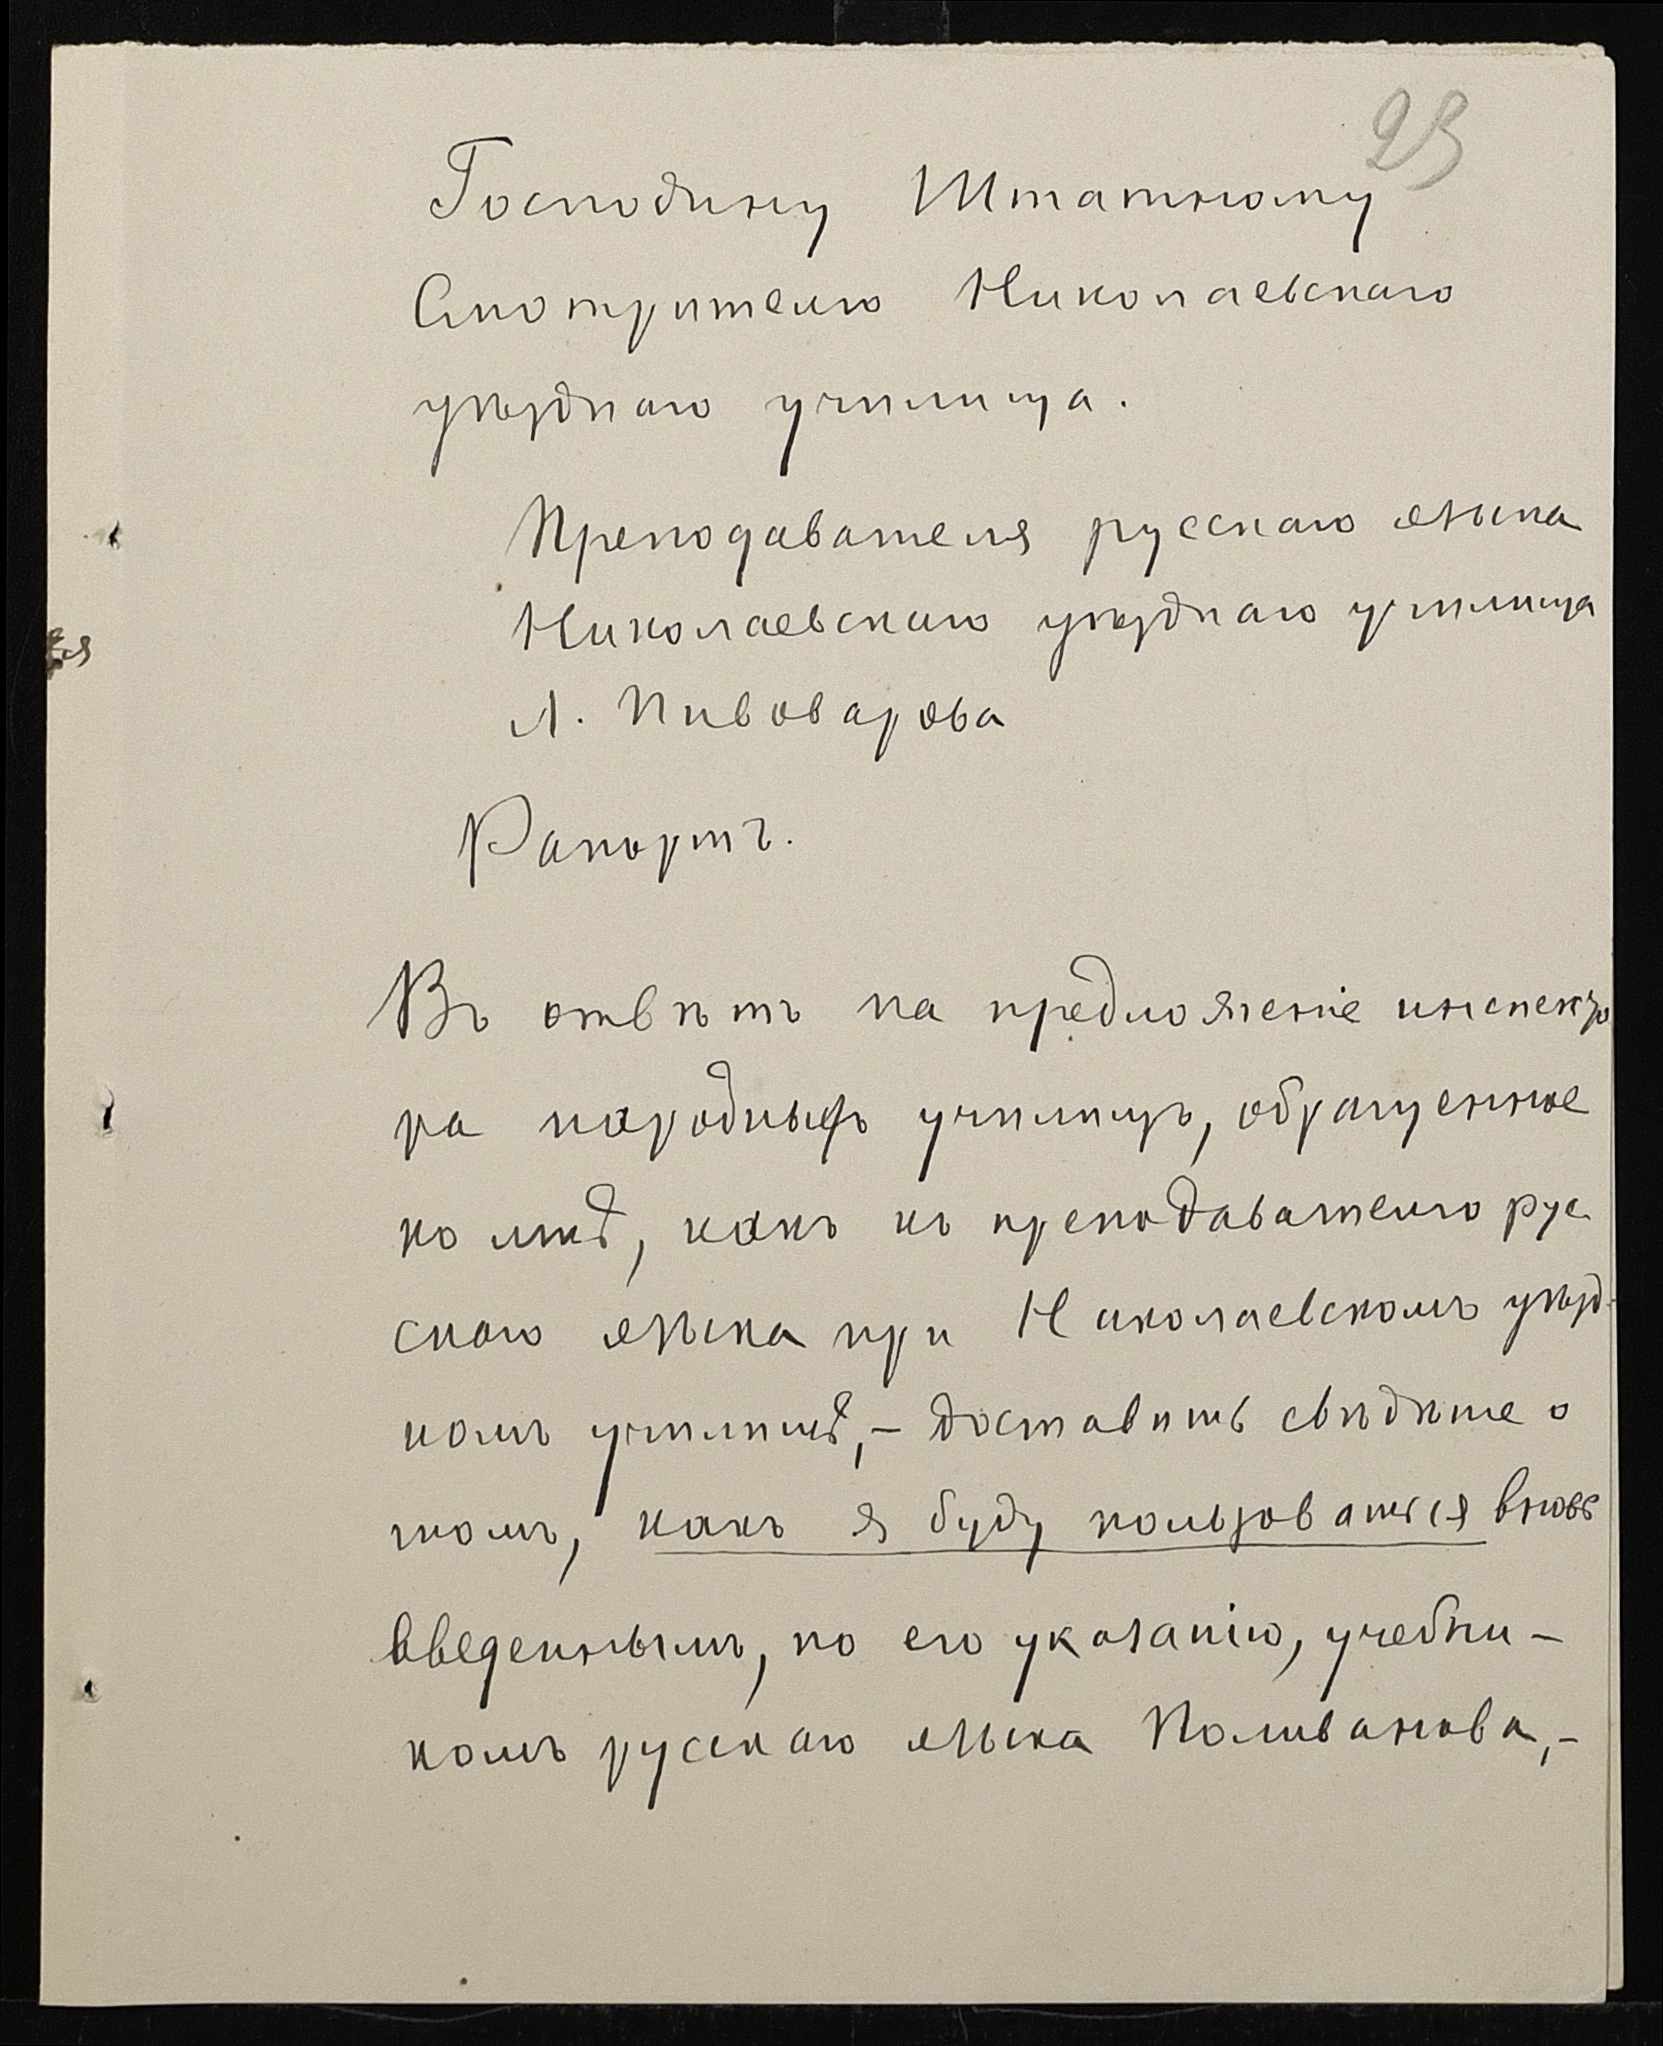 23
Господину Штатному
Смотрителю Николаевскаго
уѣзднаго училища.
Преподавателя русскаго языка
Николаевскаго уѣзднаго училища
Л. Пивоварова
Рапортъ.
Въ отвѣтъ на предложеніе инспекто
ра народныхъ училищъ, обращенное
ко мнѣ, какъ къ преподавателю рус
скаго языка при Николаевскомъ уѣзд-
номъ училищѣ, – доставить свѣдѣніе о
томъ, какъ я буду пользоваться вновь
введеннымъ, по его указанію, учебни-
комъ русскаго языка Поливанова, –